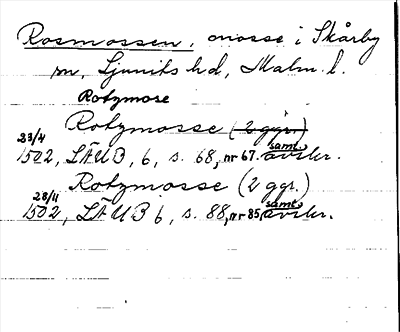 Rosmossen, mosse i Skårby
sn, Ljunits hd, Malm. l.
Rotzmose
Rotzmosse (2 ggr.)
23/4 1502, LÄUB, 6, s. 68, nr 67. samt. avskr.
Rotzmosse (2 ggr.)
28/11 1502, LÄUB 6, s. 88, nr 85 samt. avskr.